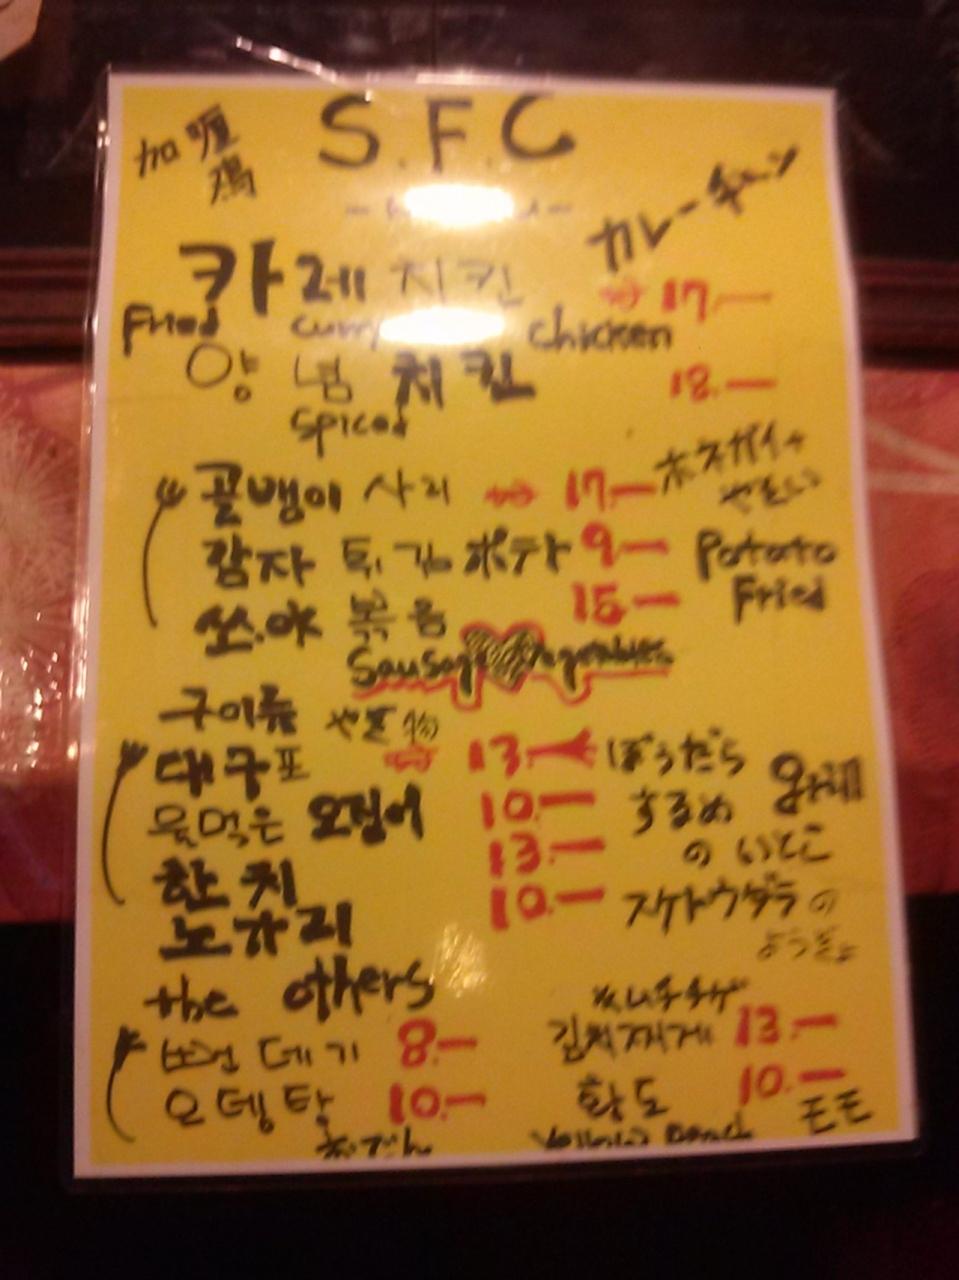 S.F.C
加喱
鶏
カレーチキン
카레 치킨 17.—
Fried curry chicken
양념 치킨 18.—
spiced
골뱅이 사리 17.— ホネガイ+
やさい
감자 튀김 ポテト 9— Potato
Fried
쏘.야 볶음 15—
Sausage vegetables
구이류 やき物
대구포 13— ぼうだら grill
못먹은 오징어 10.— するめ
한치 13.— のいとこ
노가리 10.— スケトウダラの
the others
キムチチゲ
뻔데기 8.— 김치찌게 13.—
오뎅탕 10.— 황도 10.—
おでん Yellow Peach モモ